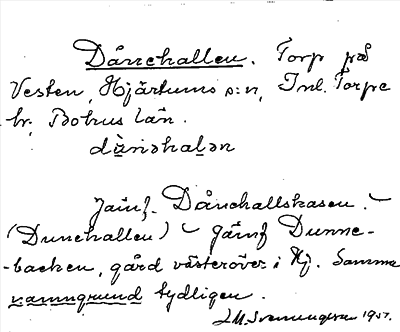 Dånehallen. Torp på
Vesten, Hjärtums s:n, Inl. Torpe
hr, Bohus län.
dù̱nəhalən
Jämf. Dånehallskasen.
(Dunehallen) Jämf Dunne-
-backen, gård västeröver i Hj. Samma
namngrund tydligen.
J.M. Svenningson 1951.